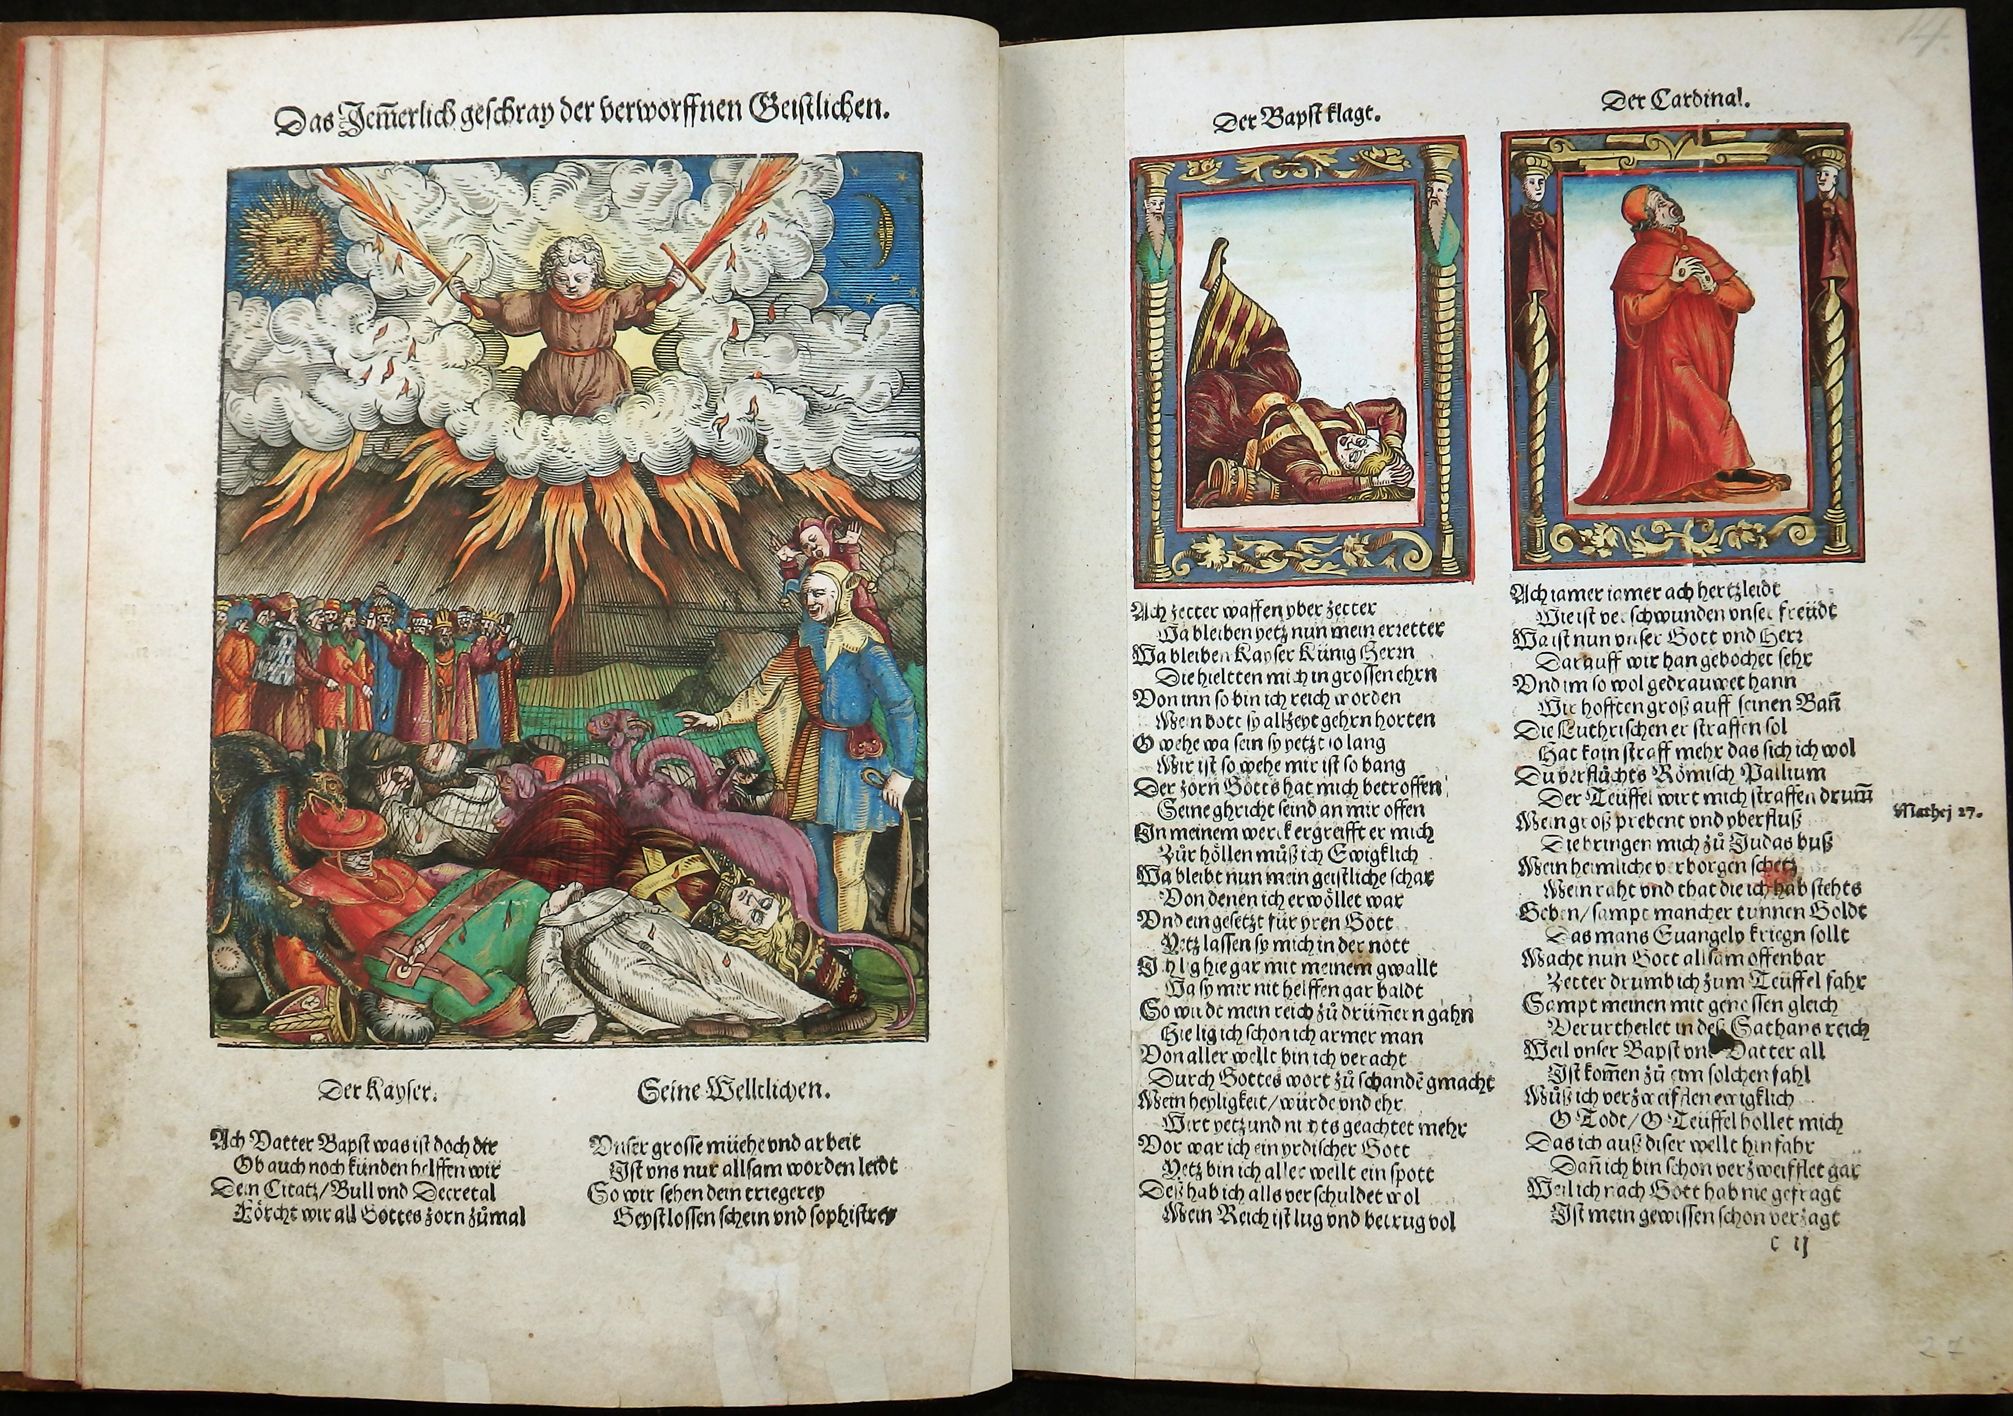 Das Jem̃erlich geschray der verworffnen Geistlichen.
Der Kayser.
Ach Vatter Bapst was ist doch dir
Ob auch noch künden helffen wir
Dein Citatz/Bull vnd Decretal
Förcht wir all Gottes zorn zůmal
Seine Welltlichen.
Vnser grosse müehe vnd arbeit
Ist vns nur allsam worden leidt
So wir sehen dein triegerey
Geystlossen schein vnd sophistrey
14.
Der Bapst klagt.
Ach zetter waffen yber zetter
Wa bleiben yetz nun mein erretter
Wa bleiben Kayser Künig Herrn
Die hieltten mich in grossen ehrn
Von inn so bin ich reich worden
Mein bott sy allzeyt gehrn horten
O wehe wa sein sy yetzt so lang
Mir ist so wehe mir ist so bang
Der zorn Gotts hat mich betroffen
Seine ghricht seind an mir offen
In meinem werck ergreifft er mich
Zůr höllen můß ich Ewigklich
Wa bleibt nun mein geistliche schar
Von denen ich erwöllet war
Vnd eingesetzt für yren Gott
Yetz lassen sy mich in der nott
Ich lig hie gar mit meinem gwallt
Wa sy mir nit helffen gar baldt
So wirdt mein reich zů drüm̃ern gahn
Hie lig ich schon ich armer man
Von aller wellt bin ich veracht
Durch Gottes wort zů schandẽ gmacht
Mein heyligkeit/würde vnd ehr
Wirt yetzund nichts geachtet mehr
Vor war ich ein yrdischer Gott
Yetz bin ich aller wellt ein spott
Deß hab ich alls verschuldet wol
Mein Reich ist lug vnd betrug vol
Der Cardinal.
Ach iamer iamer ach hertzleidt
Wie ist verschwunden vnser freüdt
Wa ist nun vnser Gott vnd Herr
Darauff wir han gebochet sehr
Vnd im so wol gedrauwet hann
Wir hofften groß auff seinen Bañ
Die Luthrischen er straffen sol
Hat kain straff mehr das sich ich wol
Du verflůchts Römisch Pallium
Der Teüffel wirt mich straffen drum̃
Mein groß prebent vnd yberfluß
Die bringen mich zů Judas bůß
Mein heimliche verborgen schetz
Mein raht vnd that die ich hab stehts
Geben/sampt mancher tunnen Goldt
Das mans Euangely kriegn sollt
Macht nun Gott allsam offenbar
Zetter drumb ich zum Teüffel fahr
Sampt meinen mit genossen gleich
Verurtheilet in deß Sathans reich
Weil vnser Bapst vnd Vatter all
Ist kom̃en zů eim solchen fahl
Můß ich verzweifflen ewigklich
O Todt/O Teüffel hollet mich
Das ich auß diser wellt hinfahr
Dañ ich bin schon verzweifflet gar
Weil ich nach Gott hab nie gefragt
Ist mein gewissen schon verzagt
Mathej 27.
C ij
27